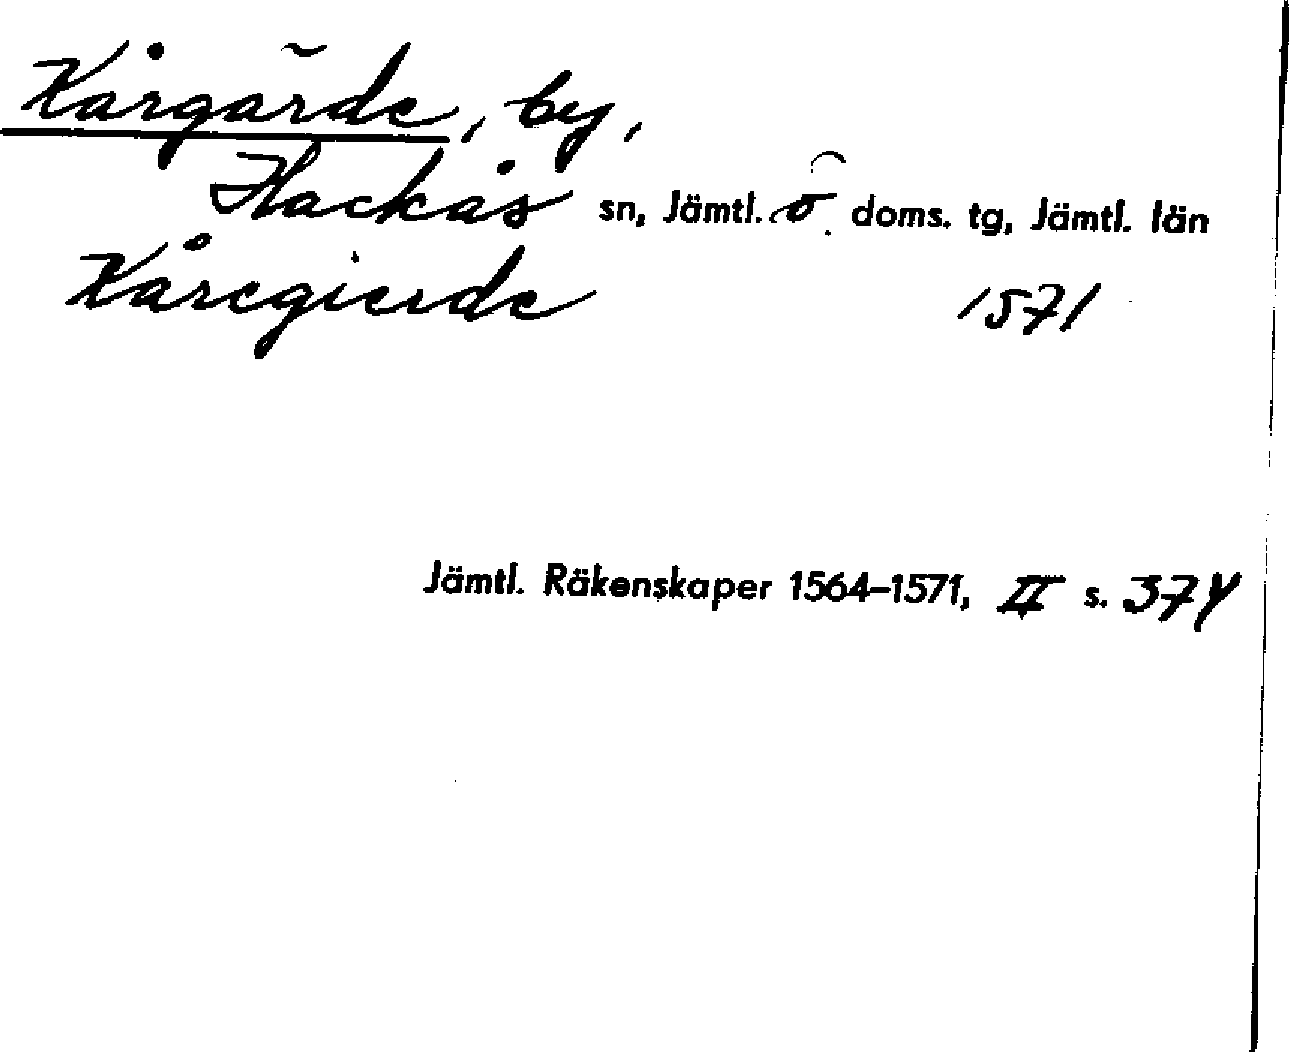 Kårgärde, by,
Hackås sn, Jämtl. ö. doms. tg, Jämtl. län
Kåregierde 1571
Jämtl. Räkenskaper 1564–1571, II s. 374